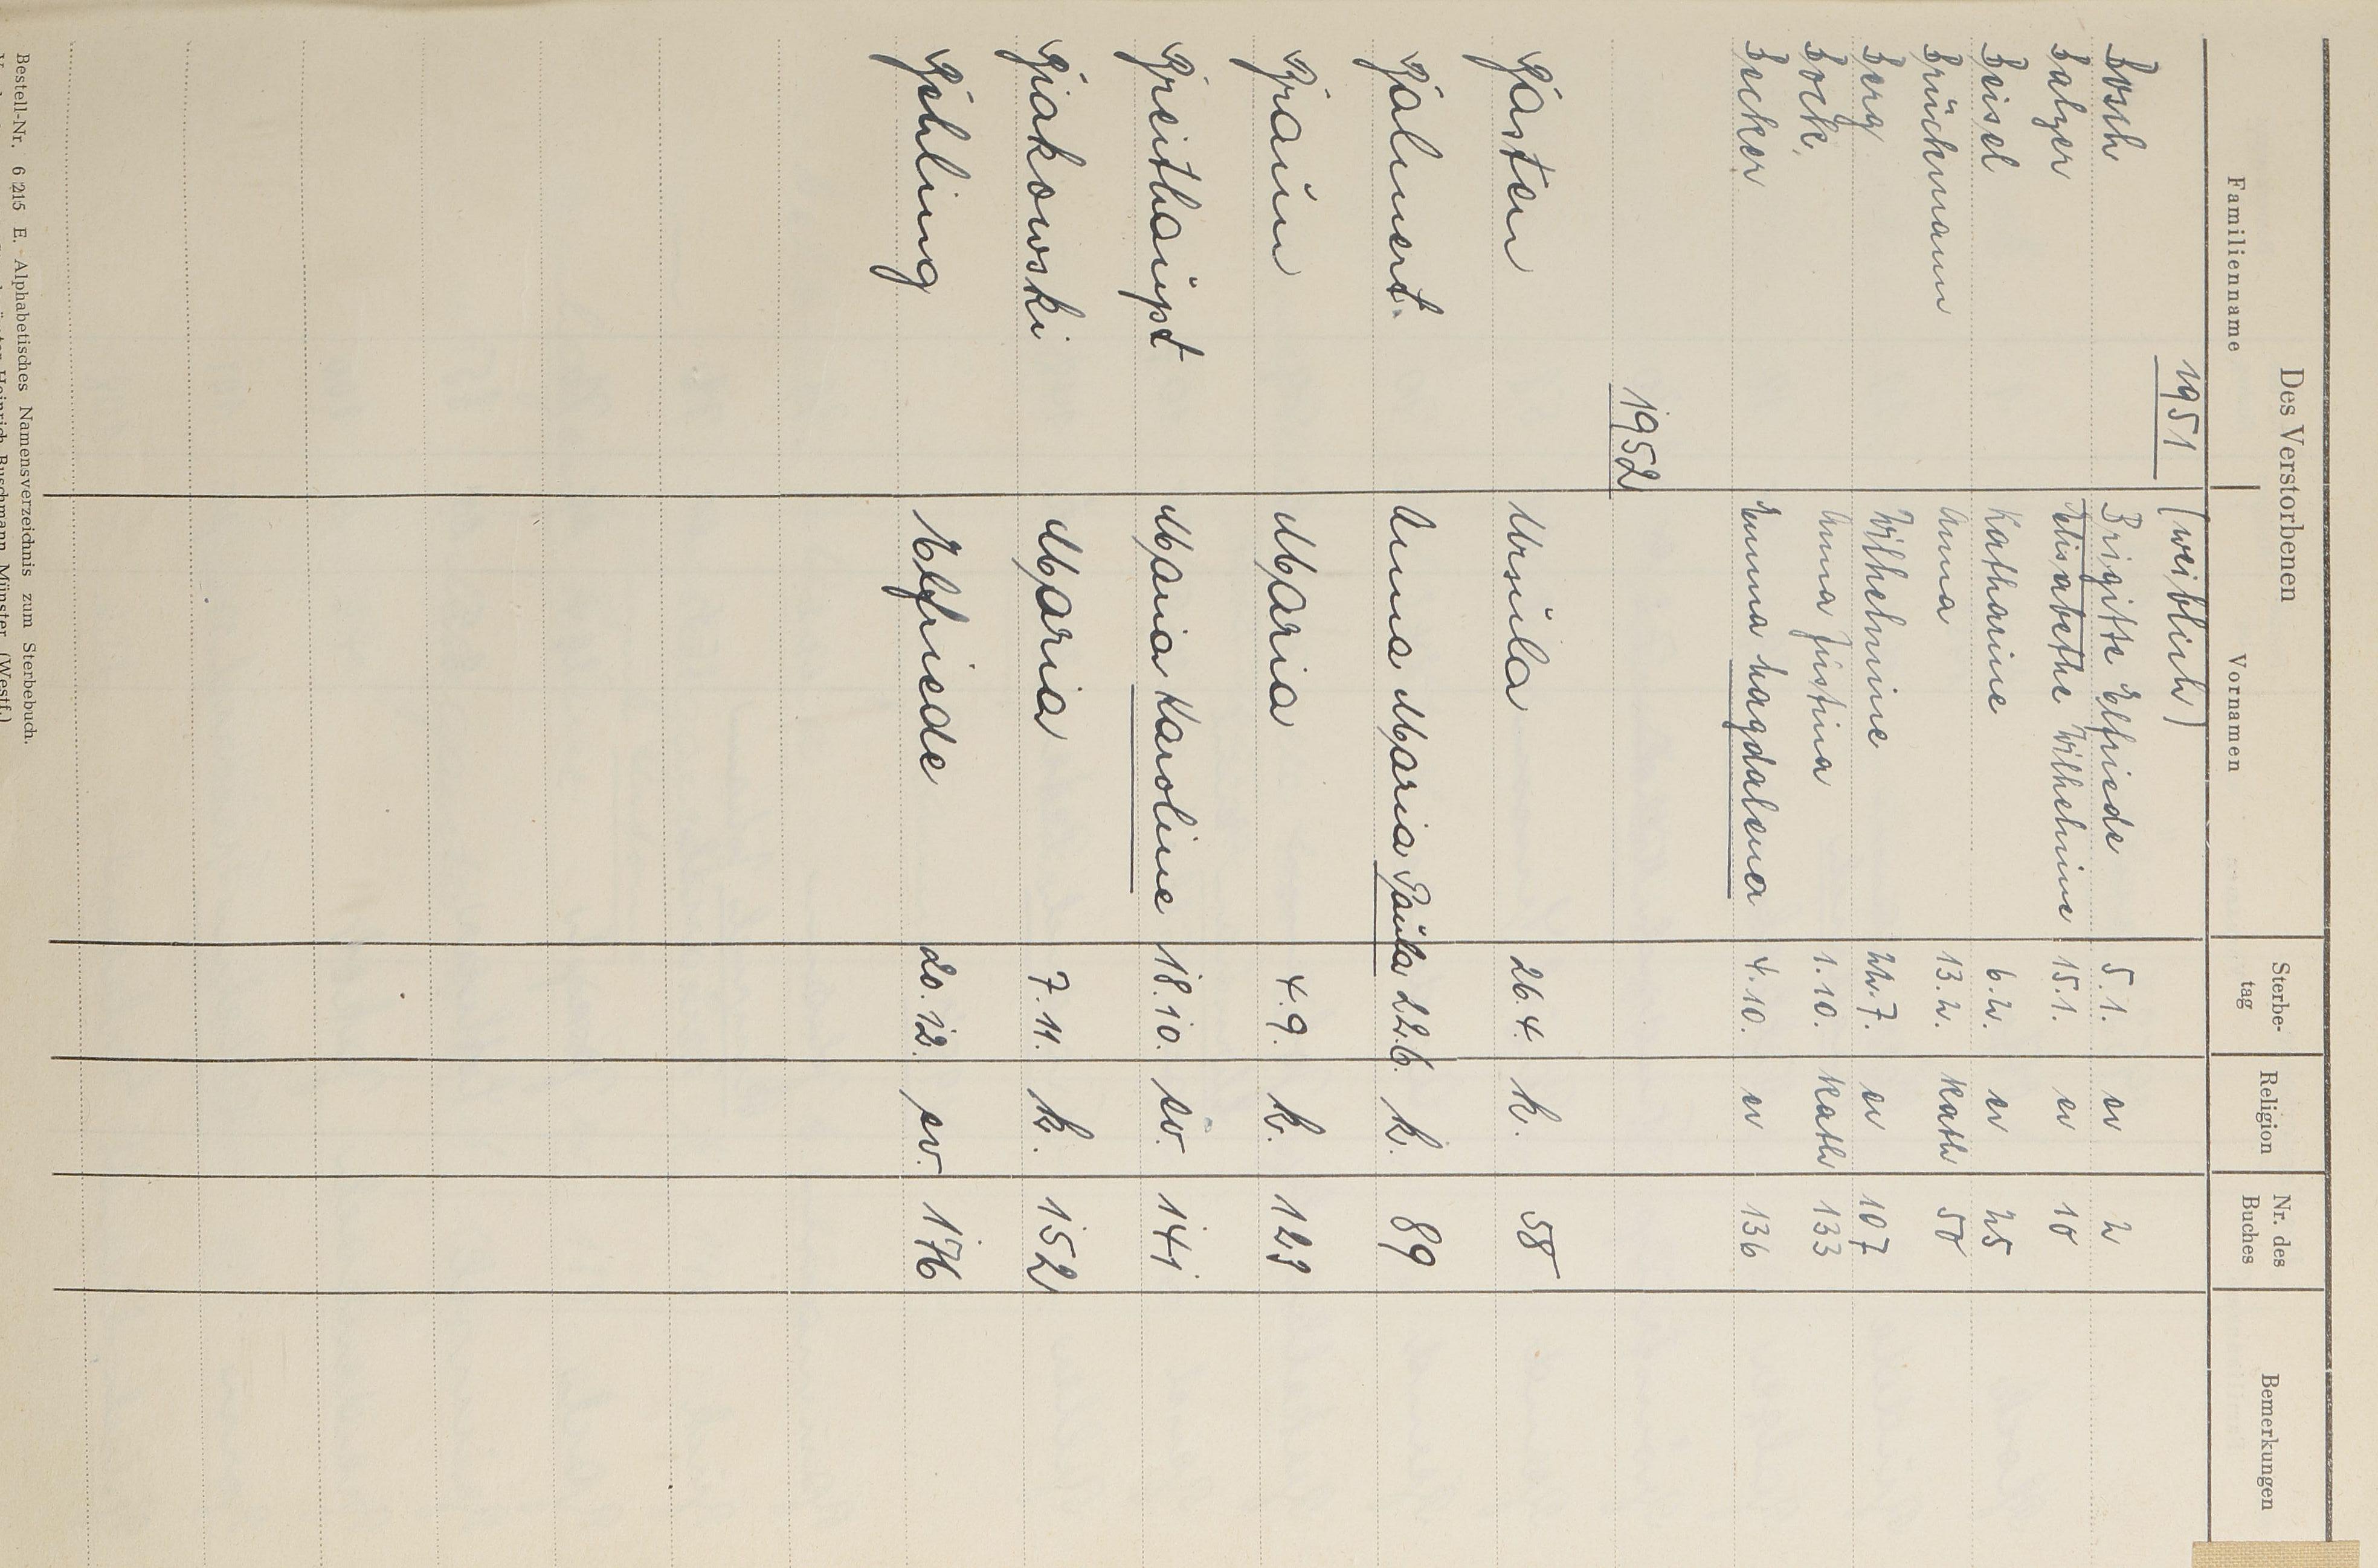 Des Verstorbenen
Familienname Vornamen Sterbe-tag Religion Nr. des Buches Bemerkungen
1951 (weiblich)
Bosch Brigitte Elfriede 5.1. ev 2
Balzer Elisabethe Wilhelmine 15.1. ev 10
Beisel Katharine 6.2. ev 25
Brückmann Anna 13.2. Kath 50
Berg Wilhelmine 22.7. ev 107
Bock Anna Justina 1.10. Kath 133
Becker Emma Magdalena 4.10. ev 136
1952
Basten Ursula 26.4. k. 58
Balmert Anna Maria Paula 22.6. k. 89
Braun Maria 4.9. k. 123
Breithaupt Maria Karoline 18.10. ev. 141
Biakowski Maria 7.11. k. 152
Behling Elfriede 20.12. ev. 176
Bestell-Nr. 6 215 E. Alphabetisches Namensverzeichnis zum Sterbebuch.
Heinrich Buschmann, Münster (Westf.)